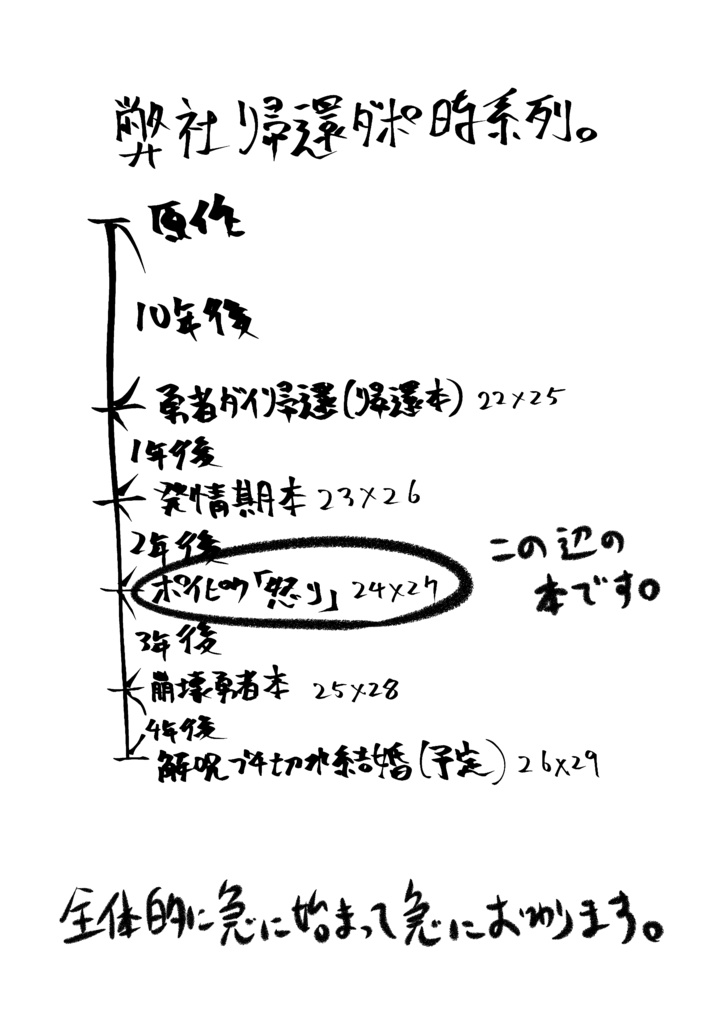 弊社帰還ダポ時系列。
原作
10年後
勇者ダイ帰還(帰還本) 22×25
1年後
発情期本 23×26
2年後
ポイピク「怒り」 24×27
この辺の
本です。
3年後
崩壊勇者本 25×28
4年後
解呪ブチ切れ結婚(予定) 26×29
全体的に急に始まって急におわります。